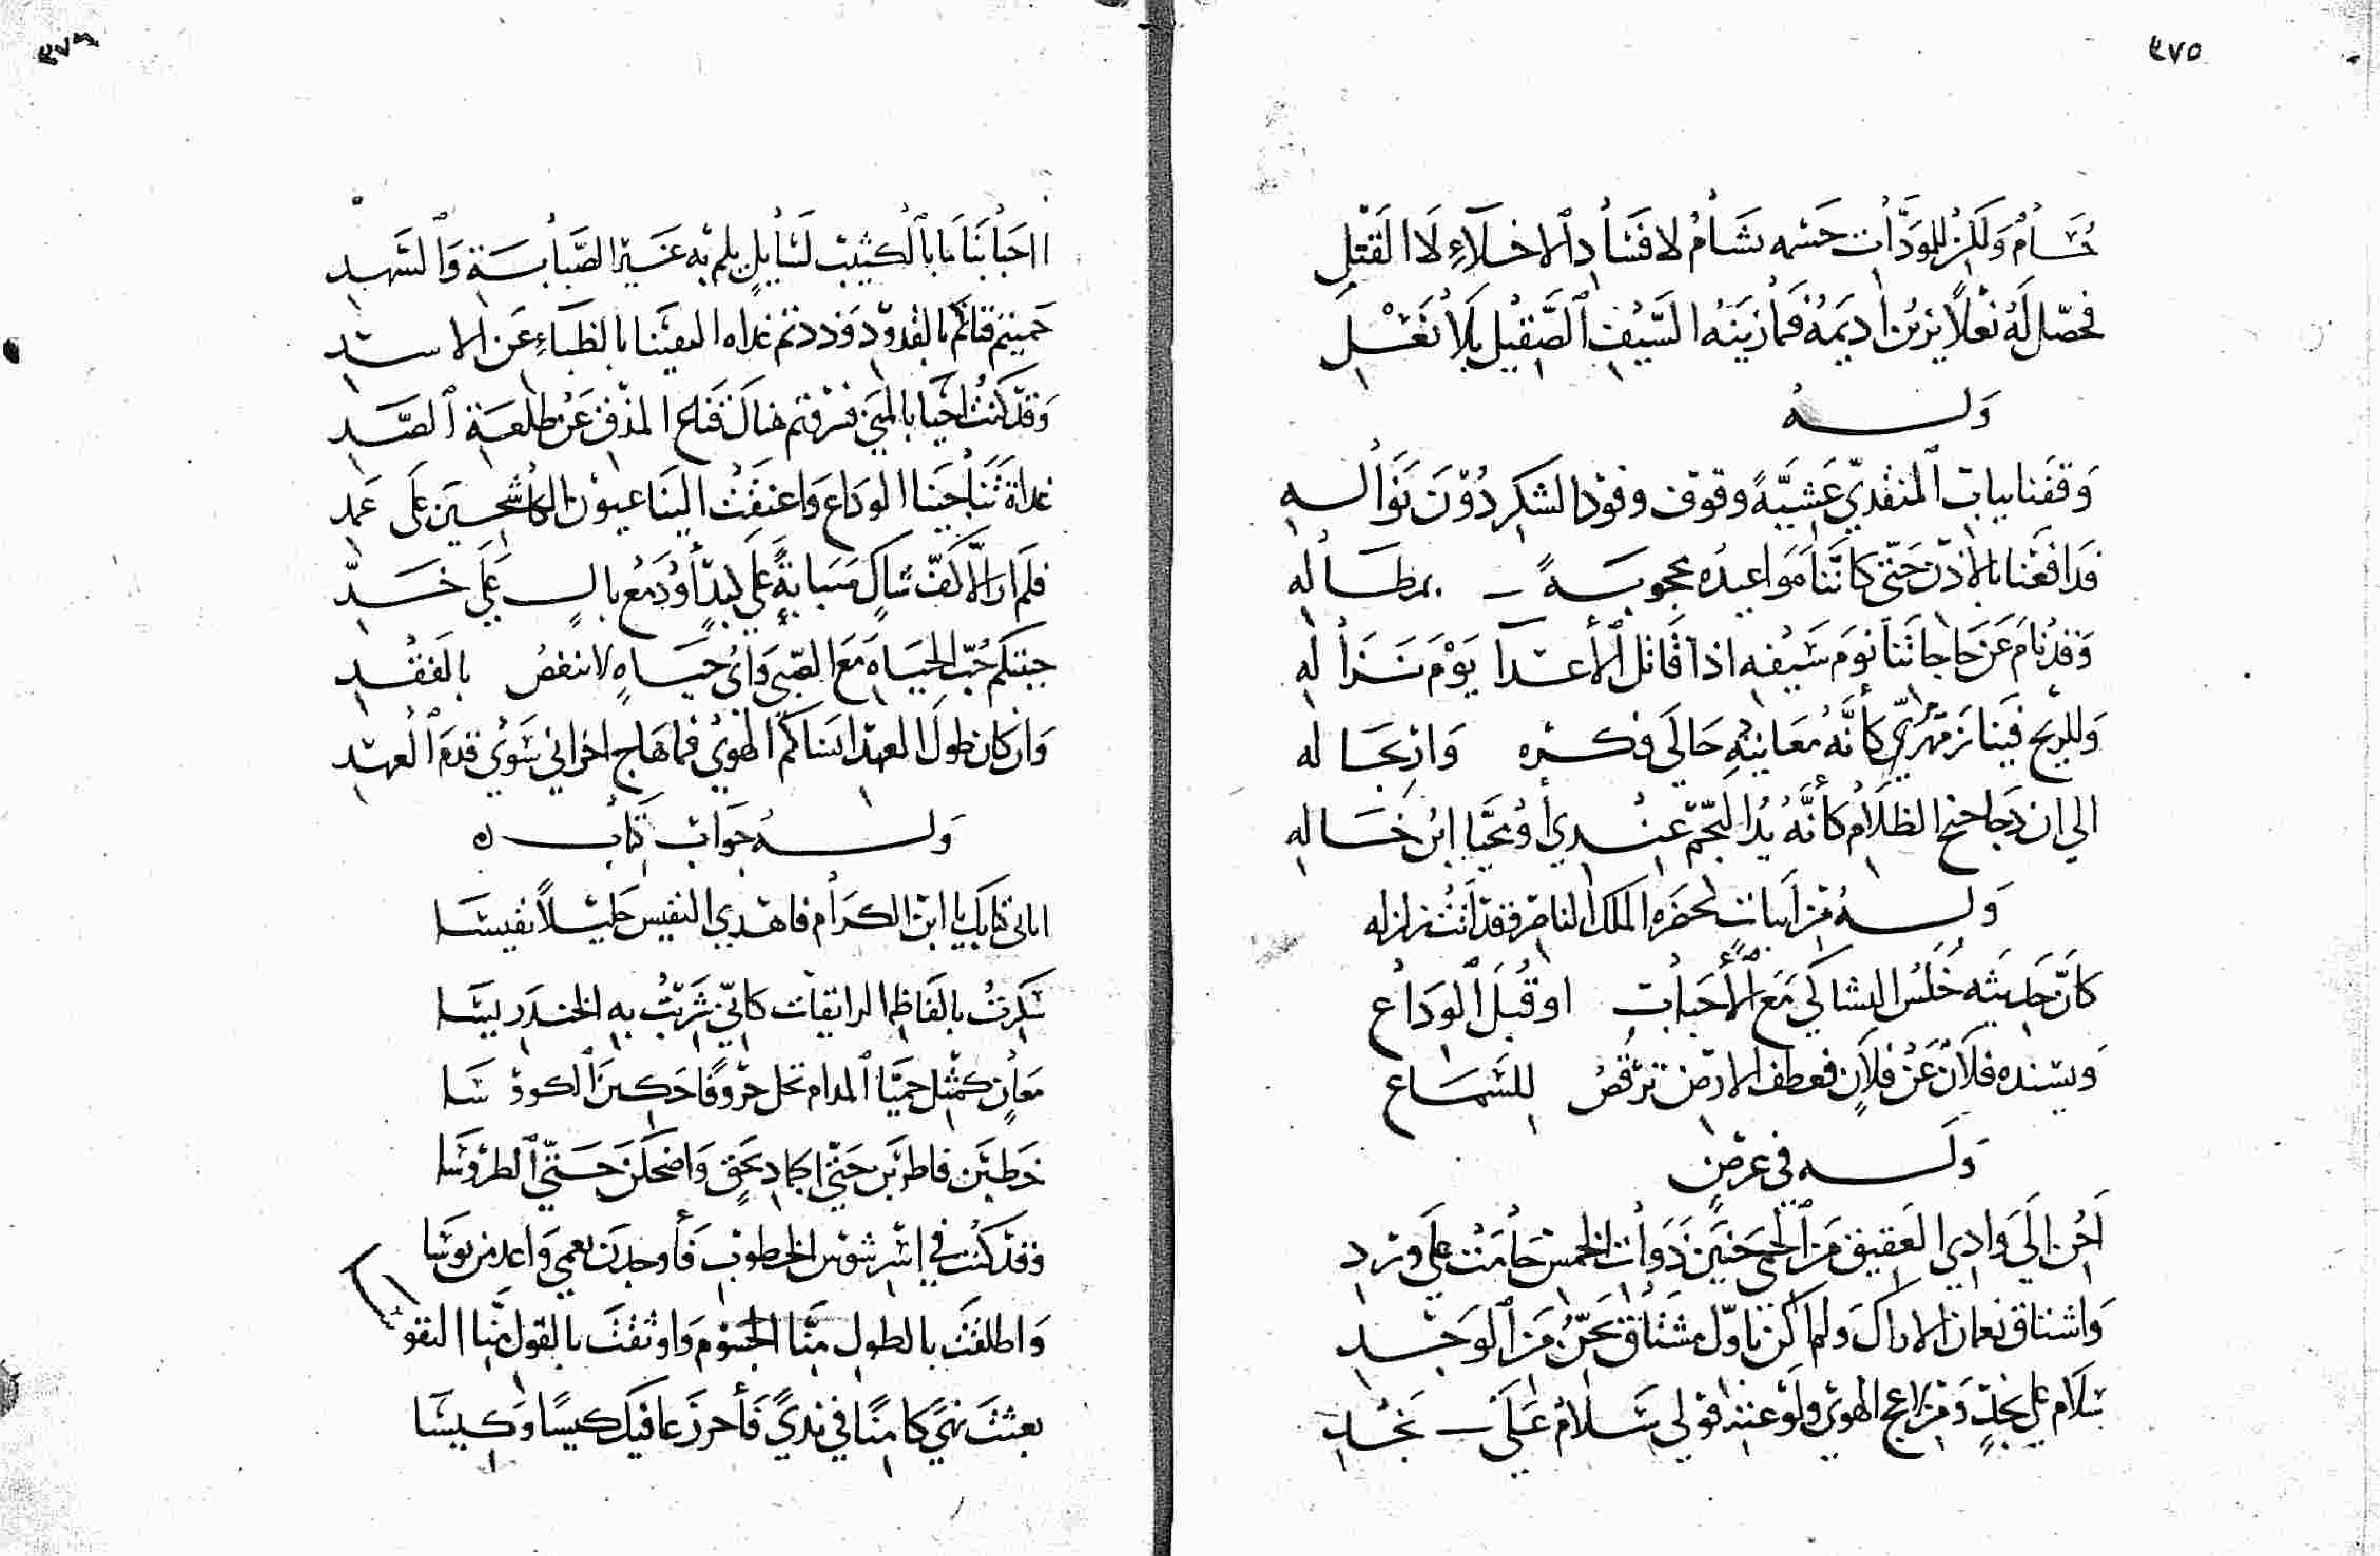 ٤٧٥
حسام ولكن للوداد حسمه يسام لافساد الاخلاء لا القتل
فحصل له نعلا يزين اديمه فما زينه السيف الصقيل بلا نعل
وله
وقفنا بباب المنقذي عشية وقوف وفود الشكر دون نواله
فدافعنا بالاذن حتى كاننا مواعيده محجوبة بمطاله
وقد نام عن حاجاتنا نوم سيفه اذا قاتل الأعدا يوم نزاله
وللريح فينا زمهرير كأنه معانيه حالي فكره وارتجاله
الى ان دجا جنح الظلام كأنه يد النجم عندي أو محيا ابن خاله
وله من ابيات لحضره الملك الناصر وقد اتت زلزله
كأن حديثه خلس التشاكي مع الأحباب او قبل الوداع
ويسنده فلان عن فلان فعطف الارض ترقص للسماع
وله في غرض
احن الى وادي العقيق من الحمى حنين ذوات الخمس حامت على ورد
واشتاق نعمان الاراك ولم اكن باول مشتاق يحن من الوجد
سلام على نجد ومن اعجب الهوى ولو عنه قولي سلام على نجد
٤٧٦
ااحبابنا بالكثيب لسايل يلم به غير الصبابة والسهد
حميتم قناكم بالقدود وذدتم غداه التقينا بالظباء عن الاسد
وقد كنت احيا بالمنى فنزفتم هناك قناع المذق عن طلعة الصد
غداة تناجينا الوداع واعنقت الينا عيون الكاشحين على عمد
فلم ار الا كف شاك صبابة على كبد أو دمع بال على خد
جنتكم حب الحياه مع الصبى واي حياه لا تنغص بالفقد
وان كان طول العهد انساكم الهوى فما هاج احزاني سوى قدم العهد
وله جواب كتاب ه
اتاني كتابك يا ابن الكرام فاهدى النفيس جليلا نفيسا
سكرت بالفاظه الرايقات كاني شربت به الخندريسا
معان كمثل حميا المدام تحل حروفا حكين الكووسا
خطين فاطربن حتى اكاد بحق واضحكن حتى الطروسا
وقد كنت في اسر شوس الخطوب فأوجدت نعمي واعدمن بوسا
واطلقت بالطول منا الجسوم واوثقت بالقول منا النفو
بعثت نهى كامنا في ندي فأحرز عافيك كيسا وكيسا